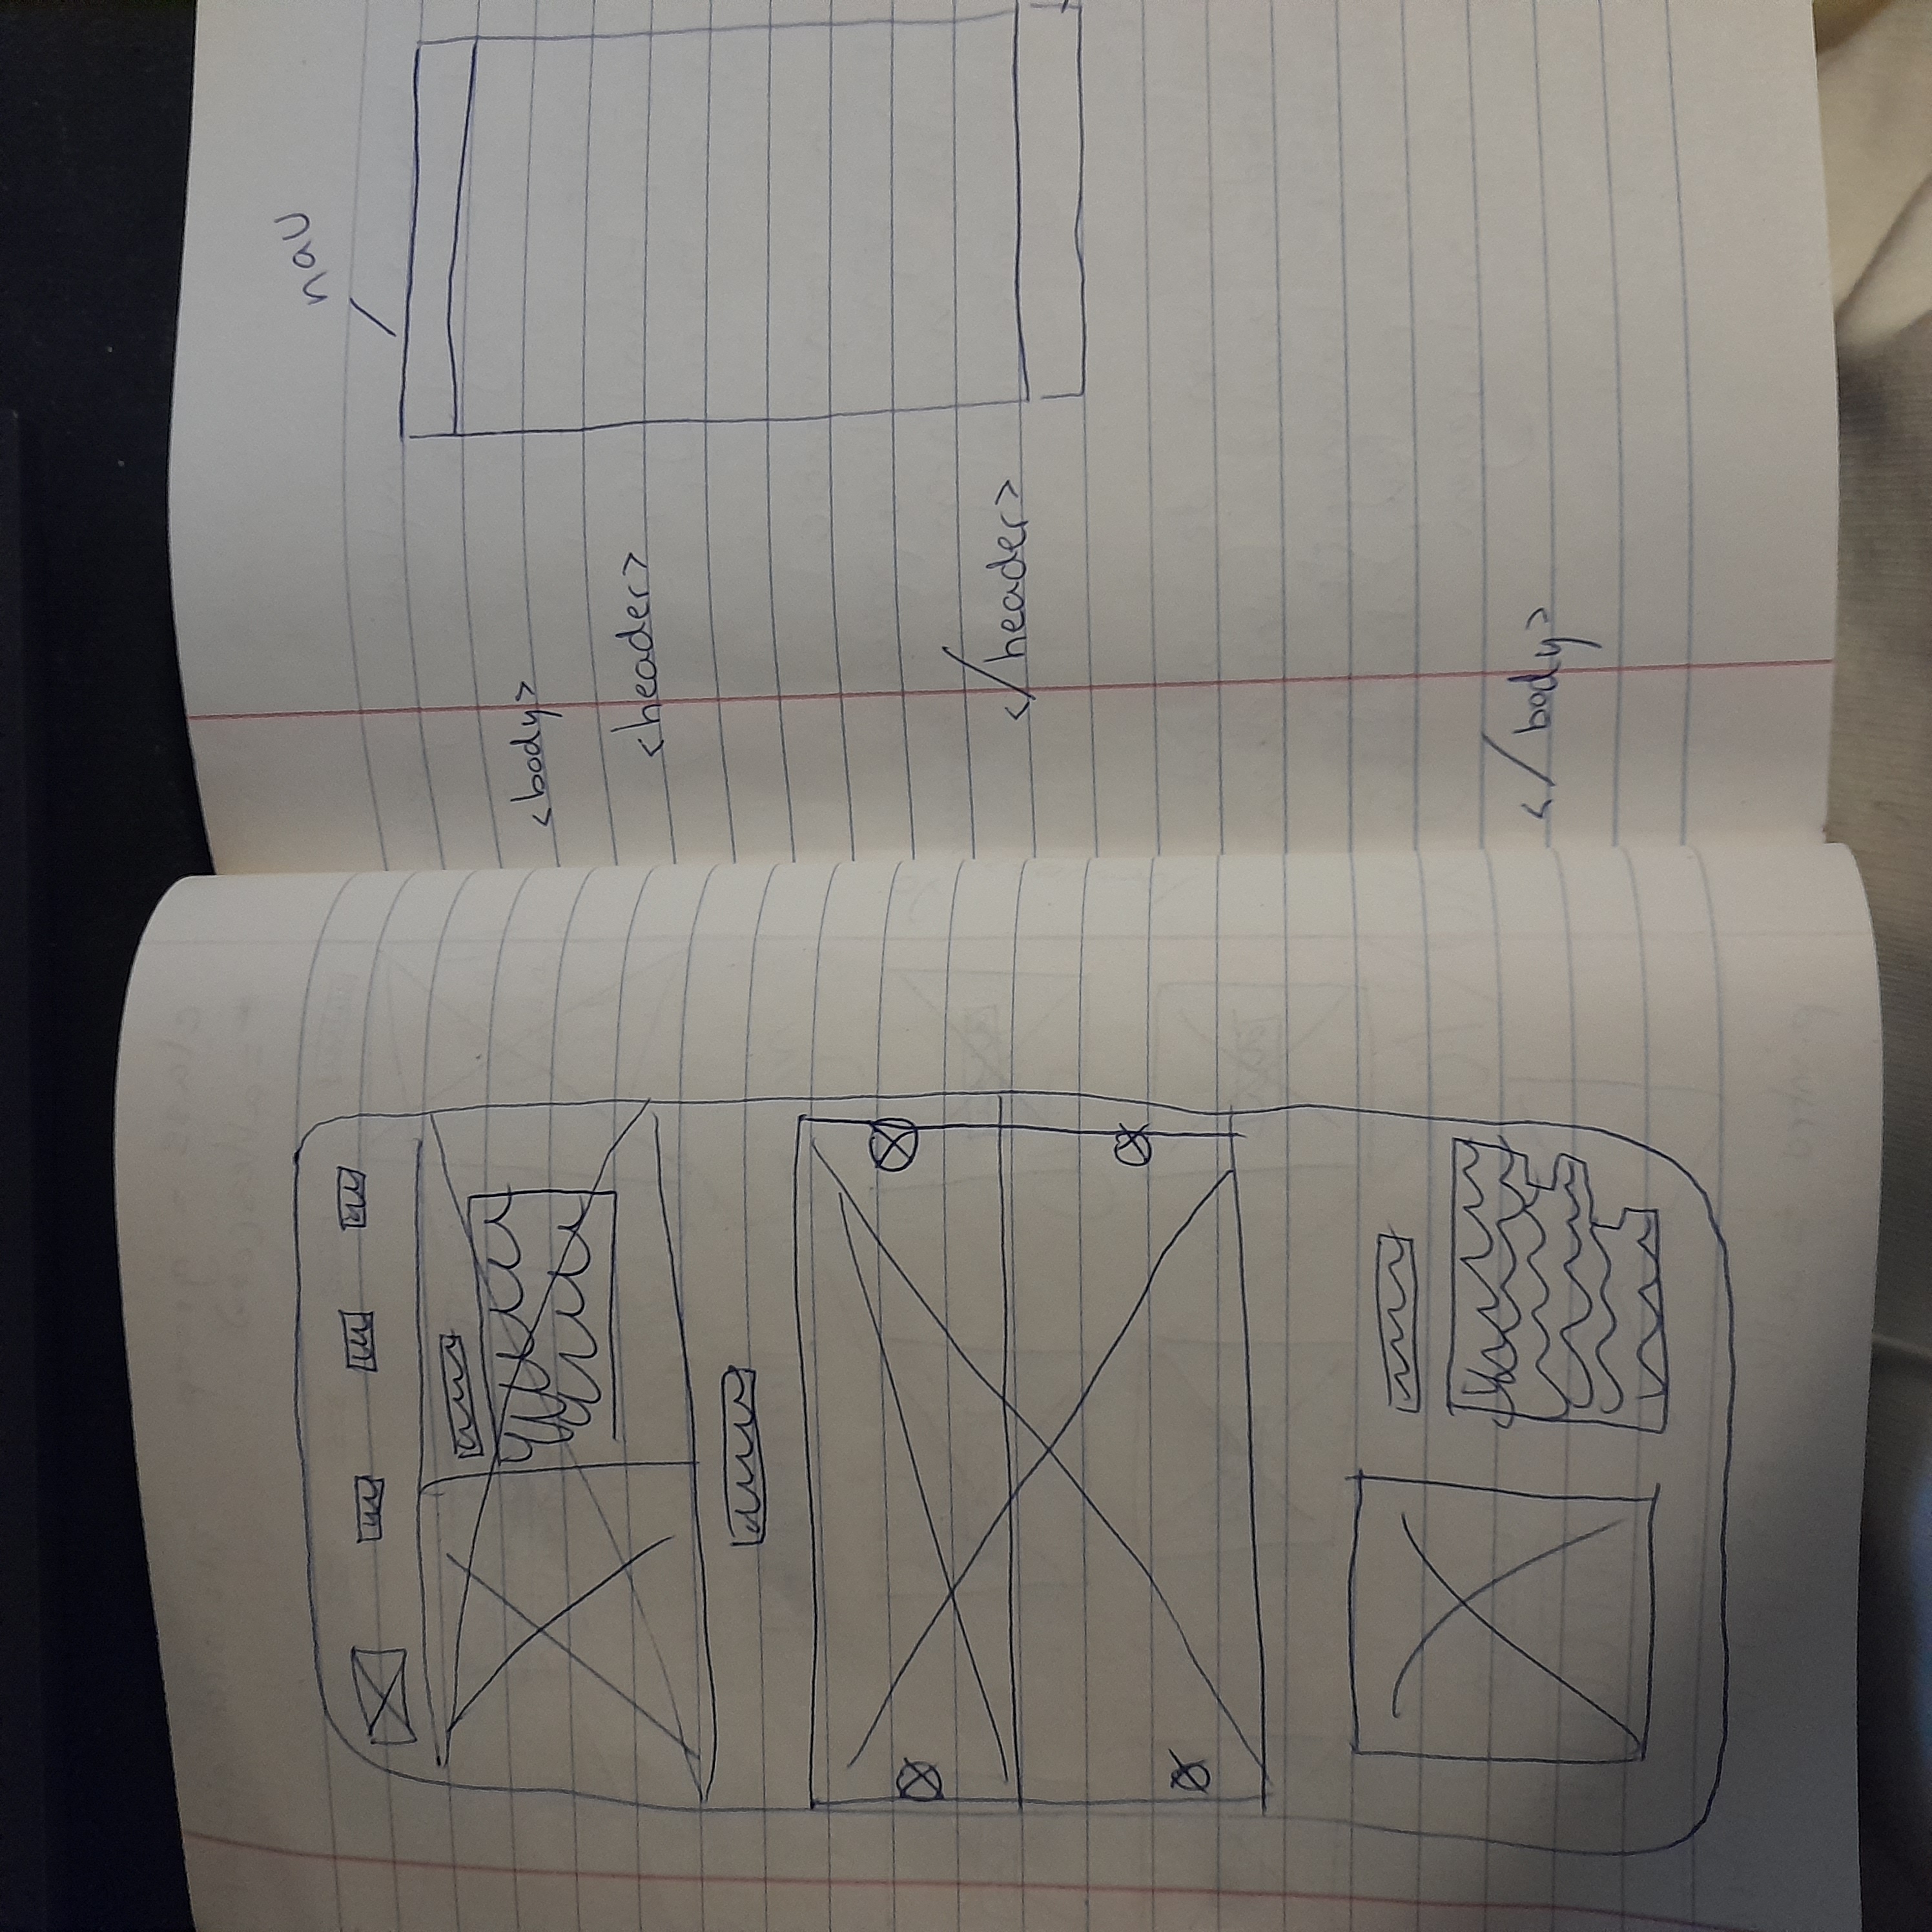 nav
<body>
<header>
</header>
</body>